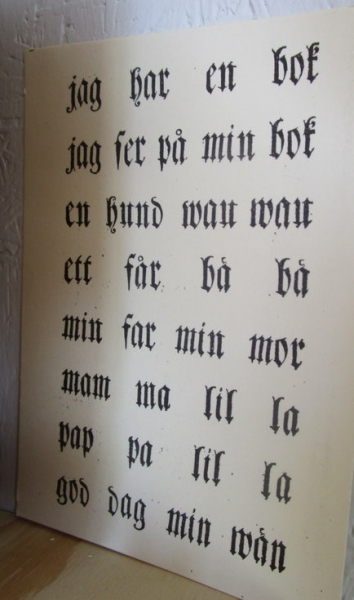 jag har en bok
jag ser på min bok
en hund wau wau
ett får bå bå
min far min mor
mam ma lil la
pap pa lil la
god dag min wän